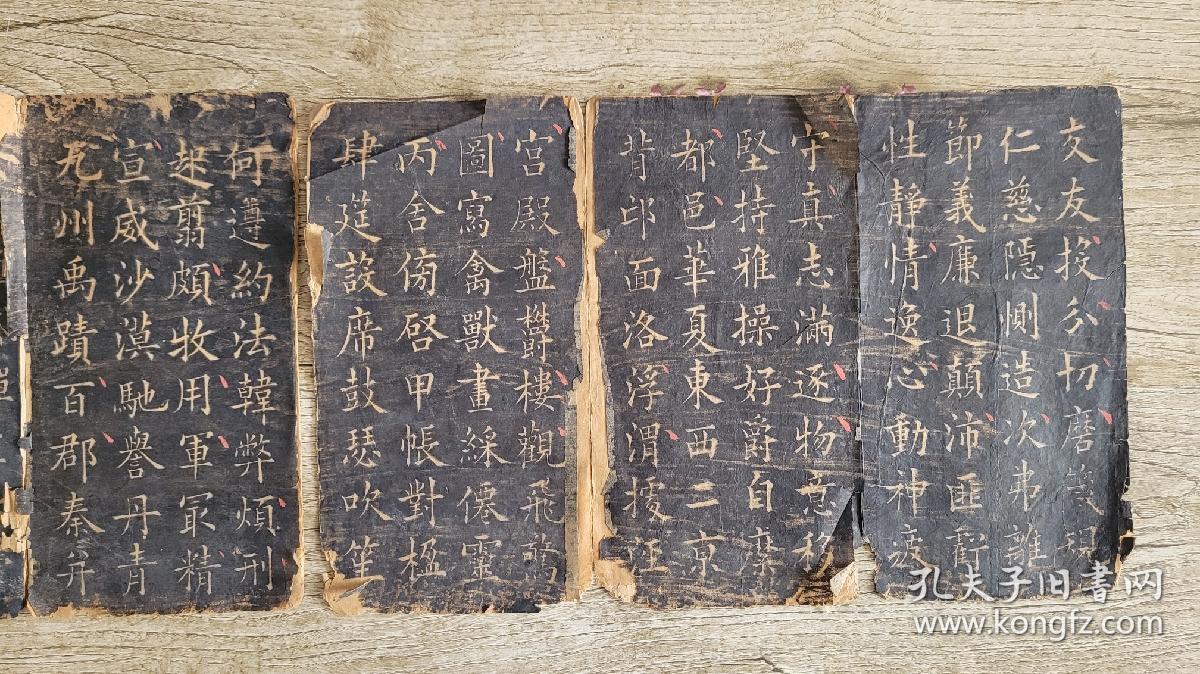 交友投分切磨箴規
仁慈隱惻造次弗離
節義廉退顛沛匪虧
性靜情逸心動神疲
守真志滿逐物意移
堅持雅操好爵自縻
都邑華夏東西二京
背邙面洛浮渭據涇
宫殿盤欝樓觀飛驚
圖寫禽獸畫綵僊靈
丙舍傍啓甲帳對楹
肆筵設席鼓瑟吹笙
何遵約法韓弊煩刑
起翦頗牧用軍冣精
宣威沙漠馳譽丹青
九州禹蹟百郡秦并
孔夫子旧书网
www.kongfz.com